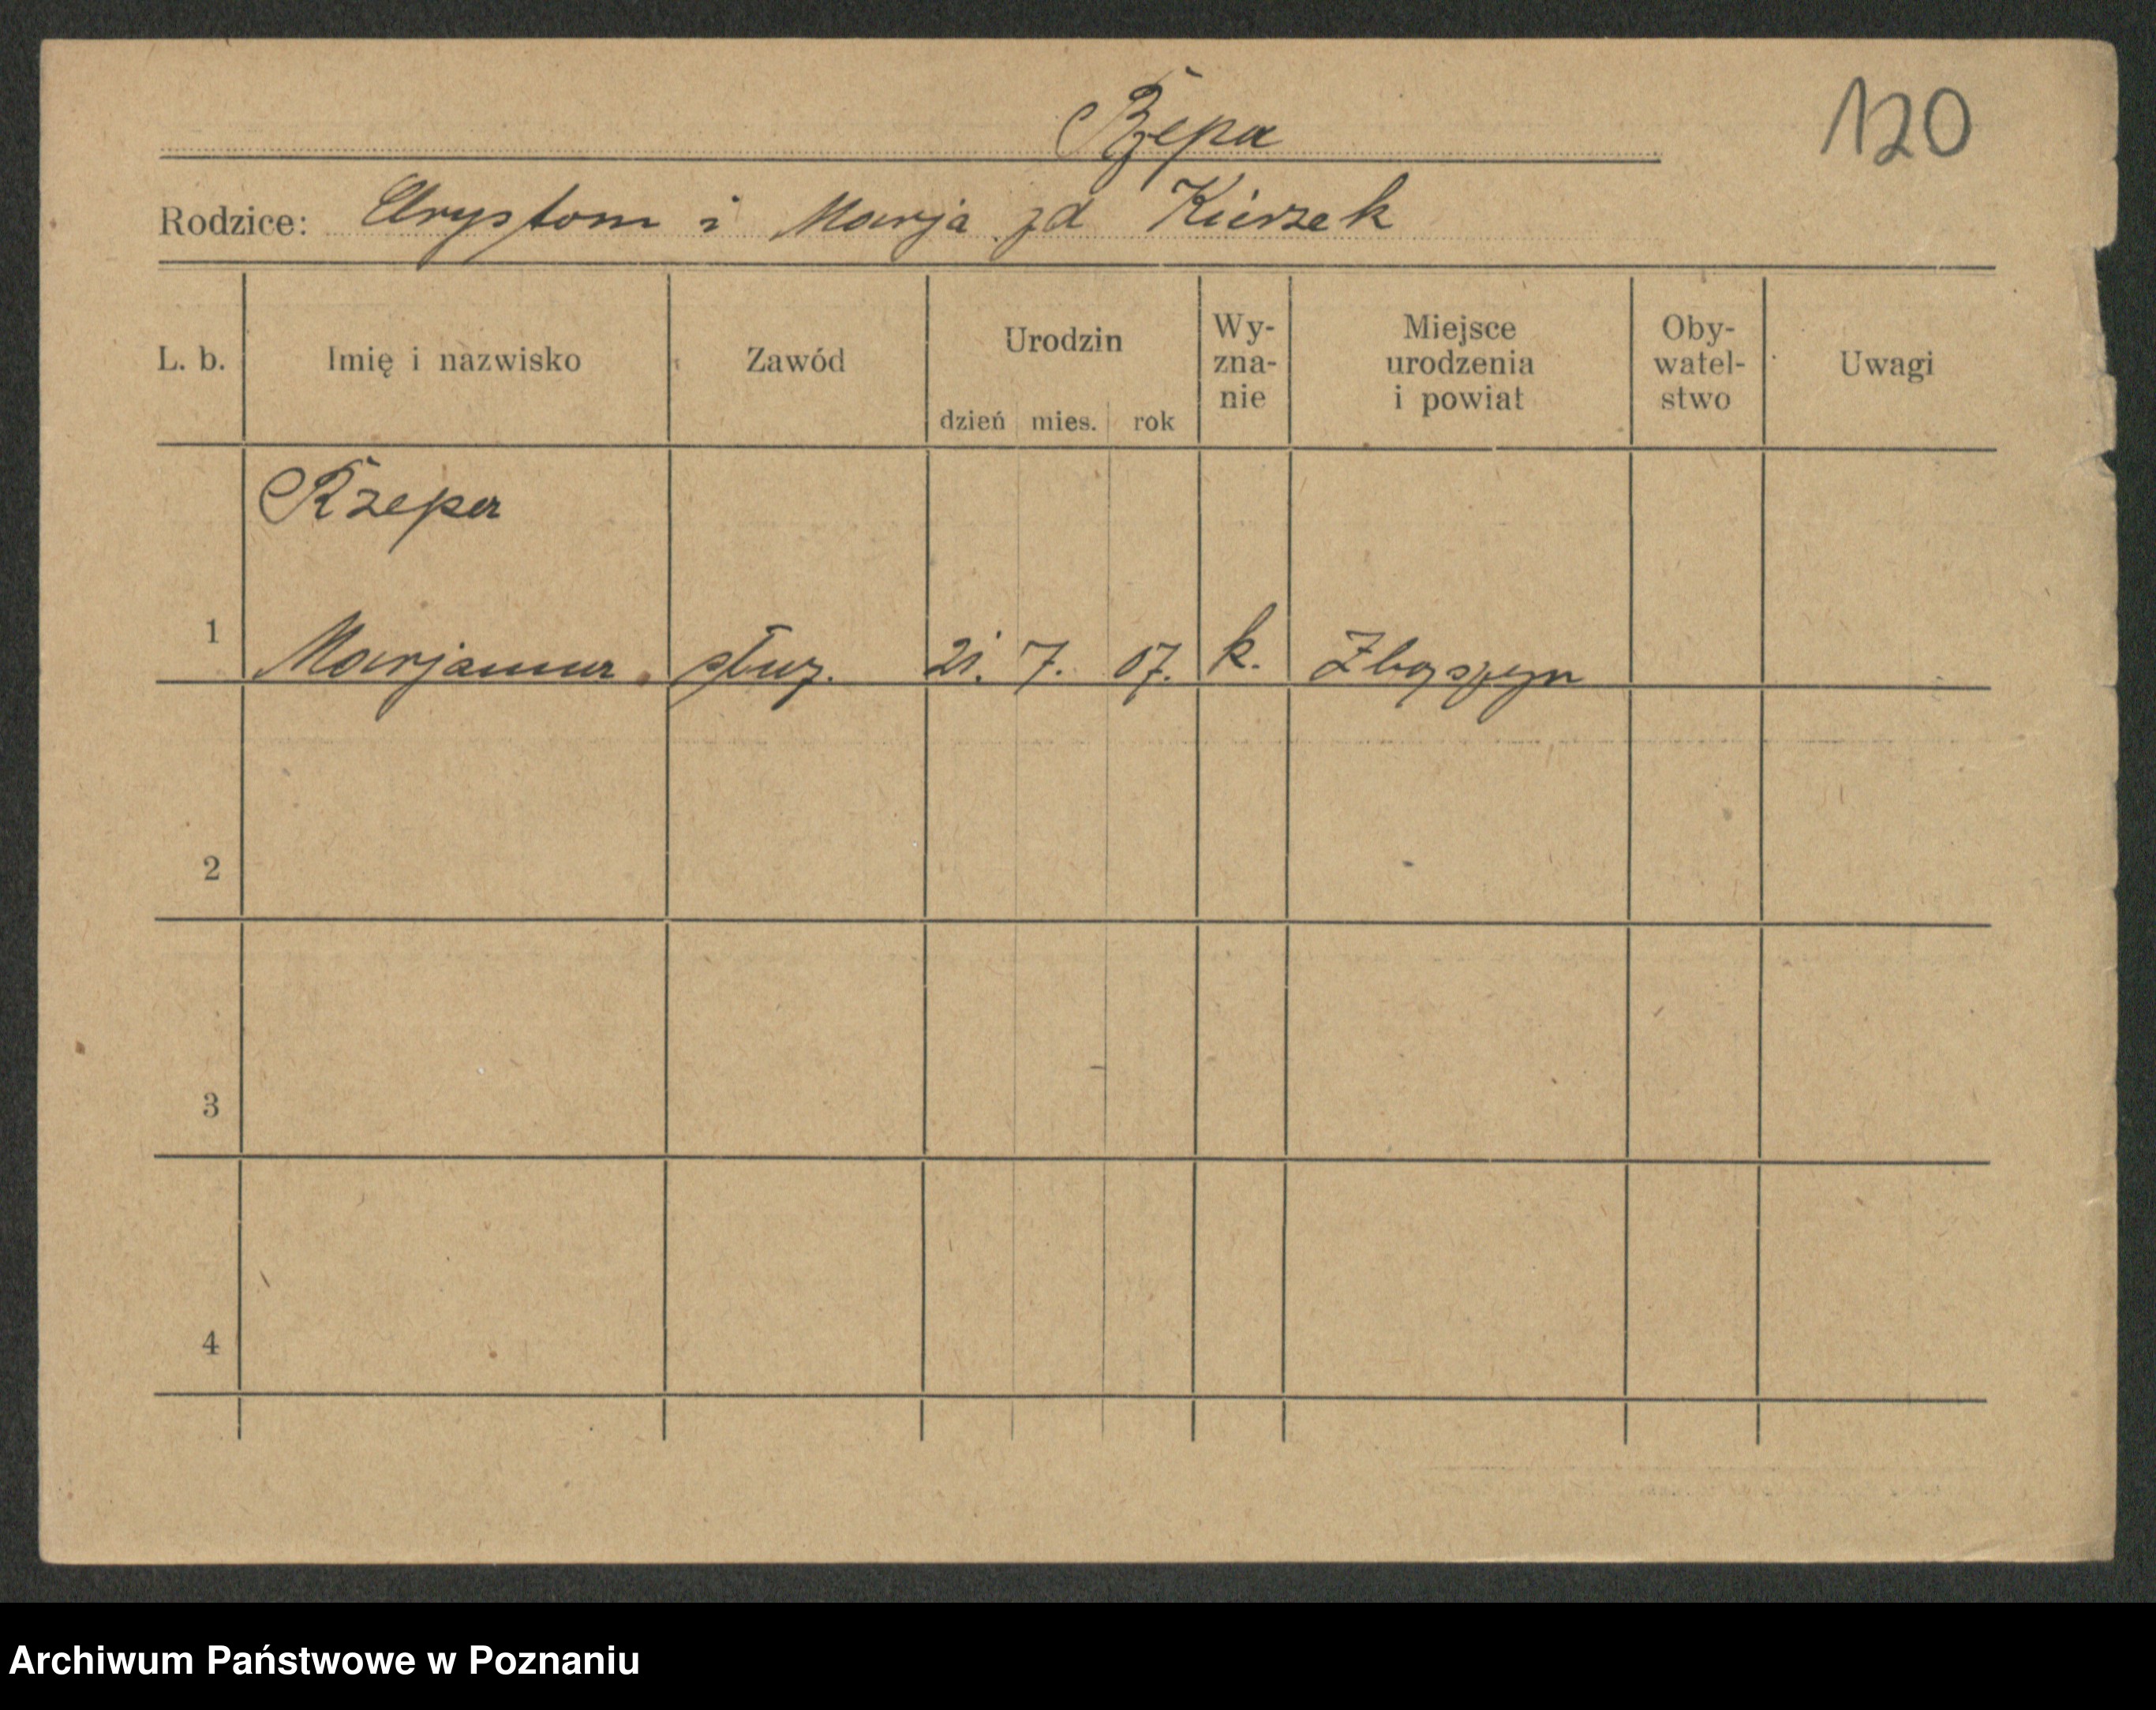 Rzepa
120
Rodzice: Chrystom i Marja zd Kierzek
L. b. Imię i nazwisko Zawód Urodzin dzień mies. rok Wy-zna-nie Miejsce urodzenia i powiat Oby-watel-stwo Uwagi
Rzepa
1 Marjanna służ. 21. 7. 07. k. Zbąszyn
2
3
4
Archiwum Państwowe w Poznaniu